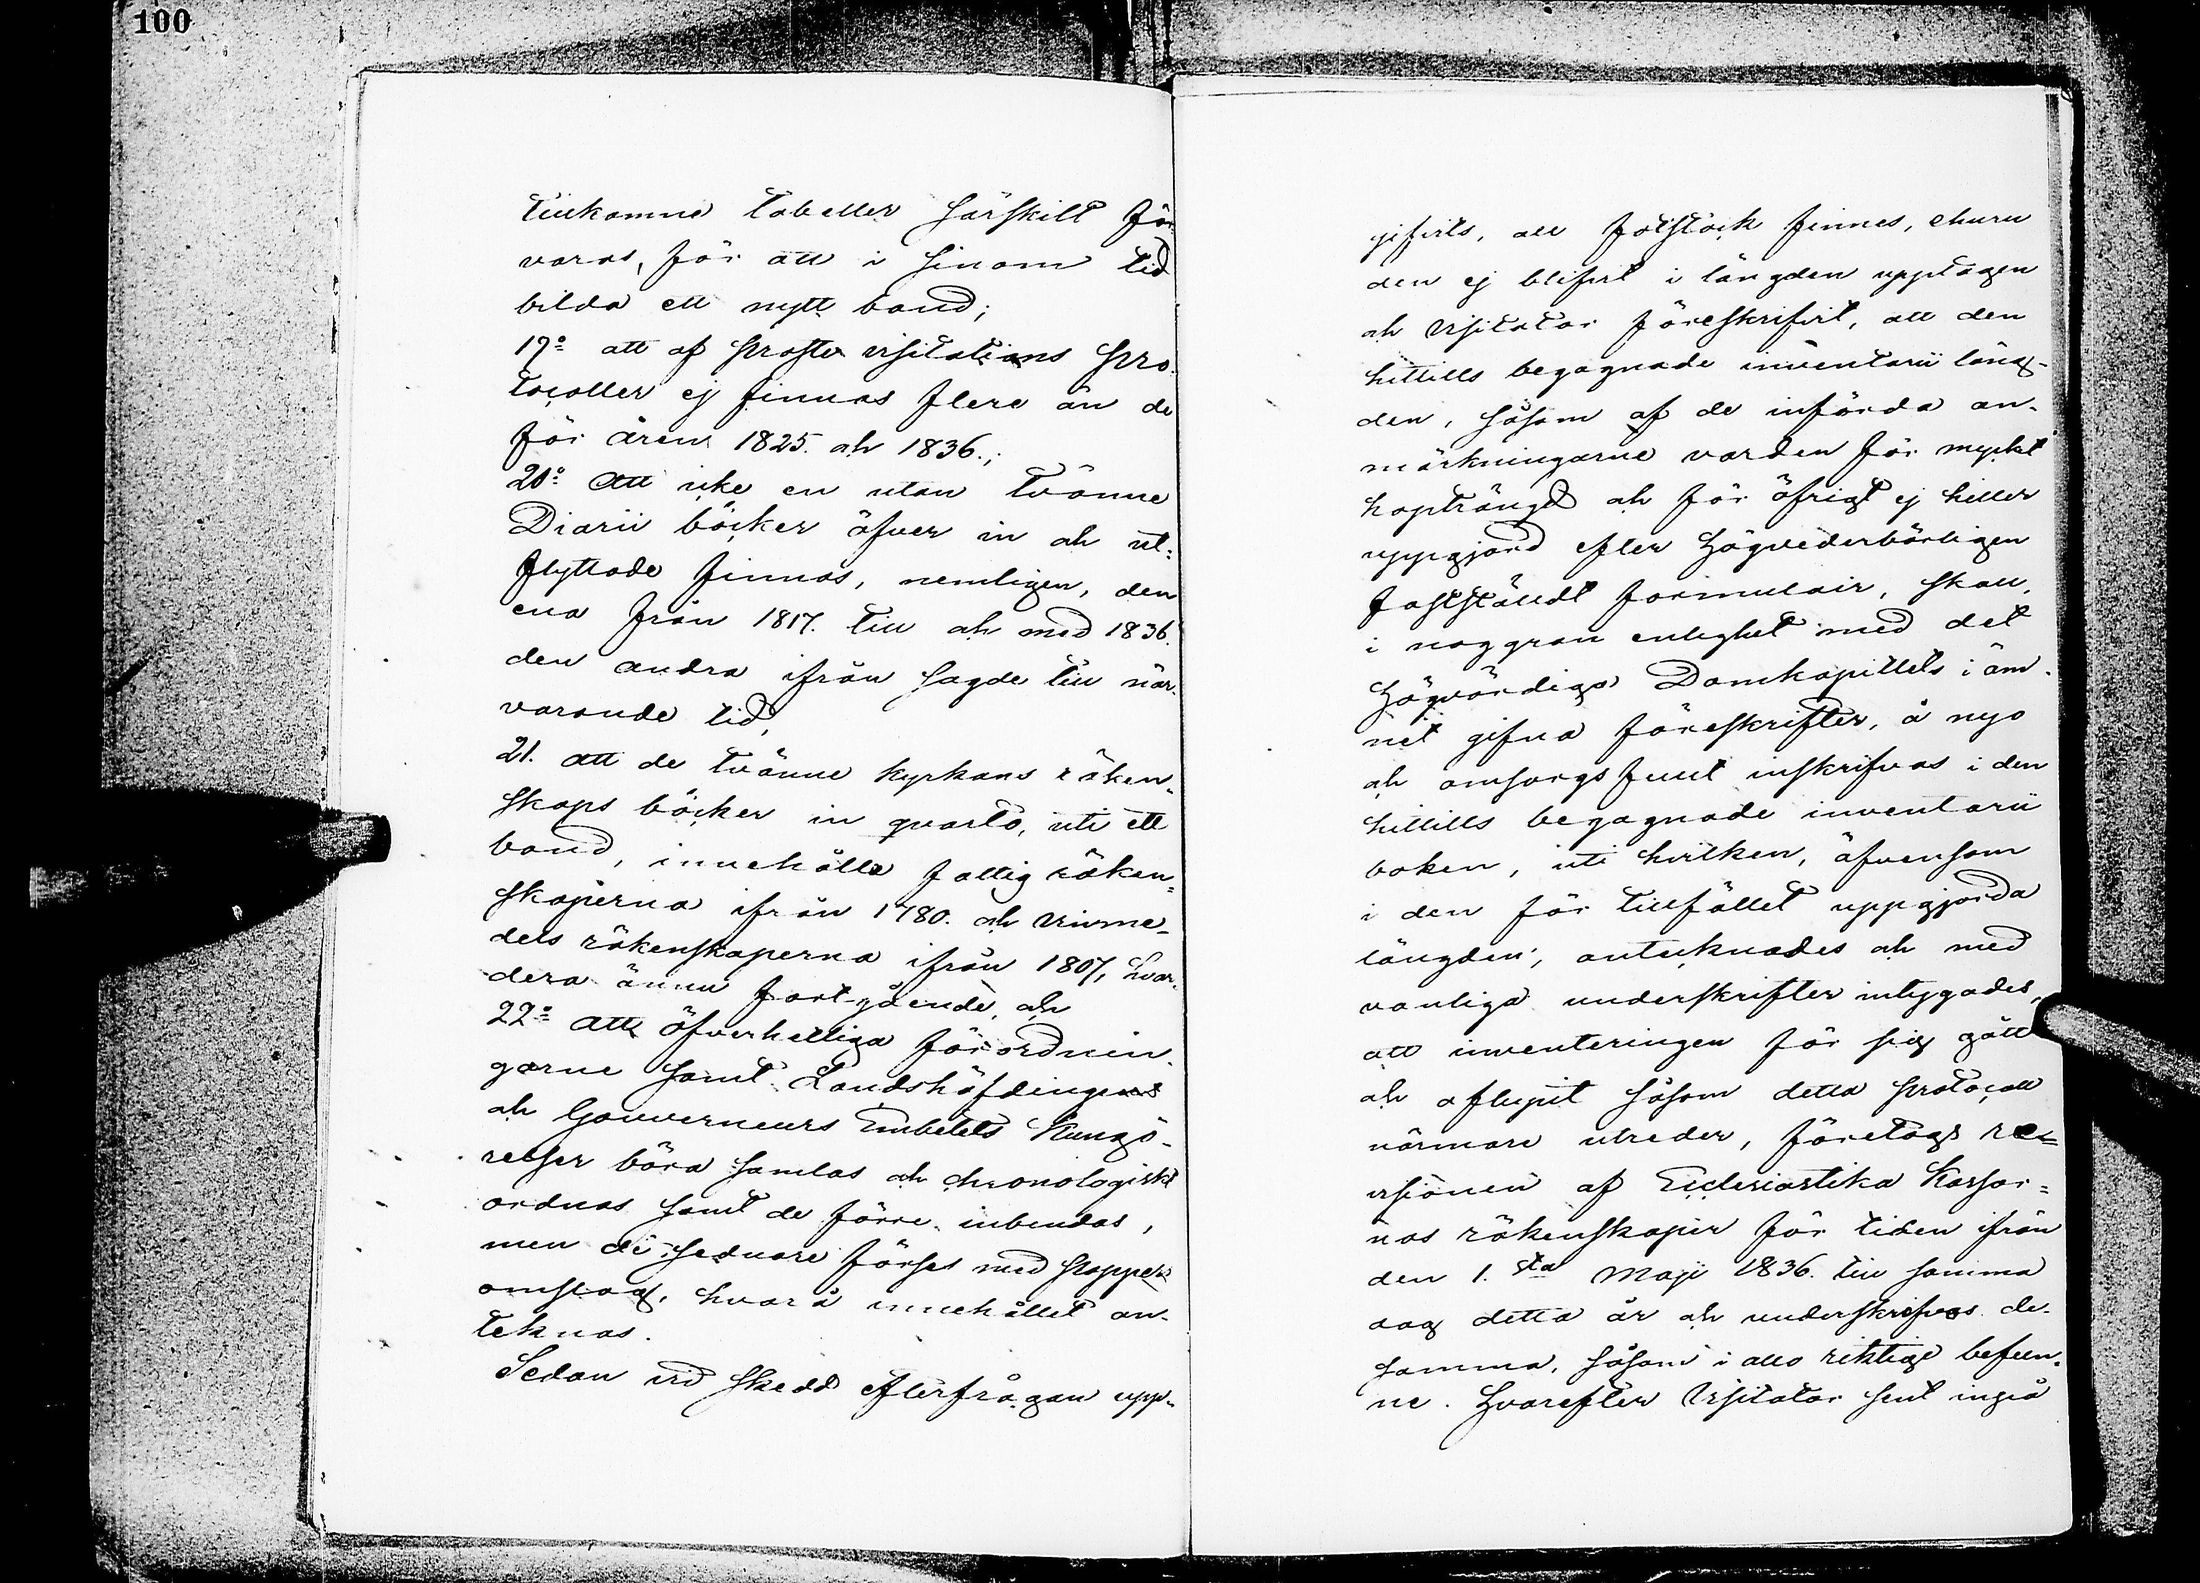 100
tillkomna tabeller särskilt för
varas, för att i sinom tid
bilda ett nytt band;
19º att af Proste visitations Pro-
tocoller ej finnas flere än de
för åren 1825. och 1836.;
20º Att icke en utan tvänne
Diarii böcker öfver in och ut-
flyttade finnas, nemligen, den
ena från 1817. till och med 1836.
den andra ifrån sagde till när-
varande tid,
21. att de tvänne kyrkans räken-
skaps böcker in quarto, uti ett
band, innehålla fattig räken-
skaperna ifrån 1780. och
dels räkenskaperna ifrån 1807, hvar-
dera ännu fortgående, och
22º att öfverhetliga förordnin-
garne samt Landshöfdingens
och Gouverneurs Embetets Kungö-
relser böra samlas och chronologiskt
ordnas samt de förre inbindas,
men de sednare förses med pappers
omslag, hvarå innehållet an-
teknas.
Sedan vid skedd efterfrågan upp-
gifvits, att fotstock finnes, churu
den ej blifvit i längden upptagen
och Visitator föreskrifvit, att den
hittills begagnade inventarii läng-
den, såsom af de införda an-
märkningarne varden för mycket
hopträngd och för öfrigt ej heller
uppgjord efter högvederbörligen
fastställdt formulair, skall,
i noggran enlighet med det
Högvördiga Domkapitlets i äm-
net gifna föreskrifter, å nyo
och omsorgsfullt inskrifvas i den
hittills begagnade inventarii
boken, uti hvilken, äfvensom
i den för tillfället uppgjorda
längden, antecknades och med
vanliga underskrifter intygades,
att inventeringen för sig gått
och aflupit såsom detta Protocoll
närmare utreder, företogs re-
visionen af Ecclesiastika Kassor-
nas räkenskaper för tiden ifrån
den 1.sta Maji 1836. till samma
dag detta år och underskrefvos de-
samma, såsom i allo riktige befun-
ne. Hvarefter Visitator sent ingå